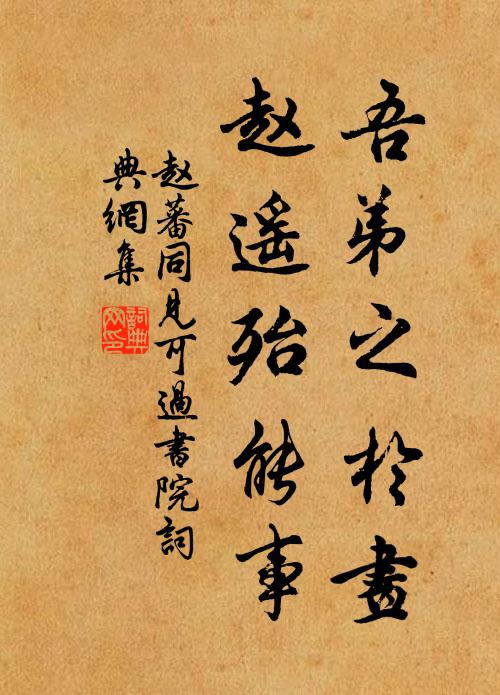 吾弟之於畫
赵遥殆能事
赵蕃同見可過書院詞
典網集
詞典網印